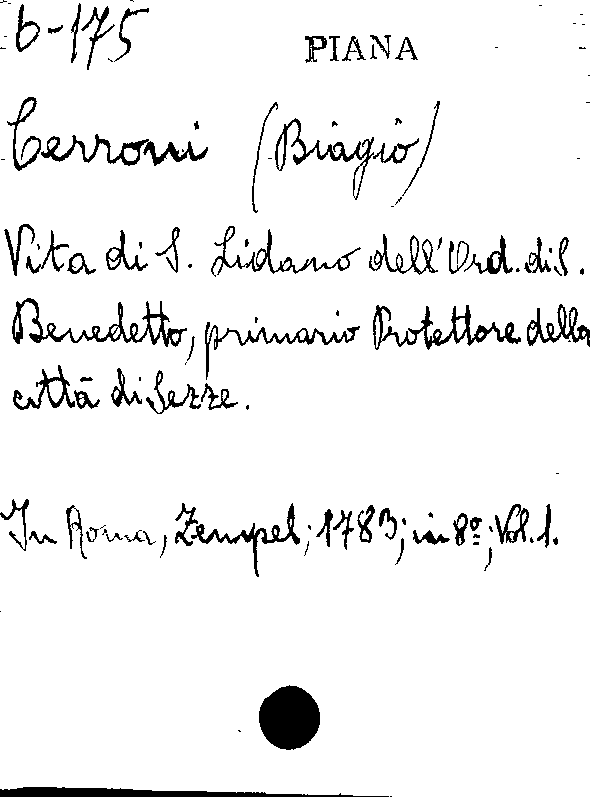 6-175
PIANA
Cerroni (Biagio)
Vita di S. Lidano dell'Ord. di S.
Benedetto, primario Protettore della
città di Sezze.
In Roma, Zempel; 1783; in 8º; Vol. 1.